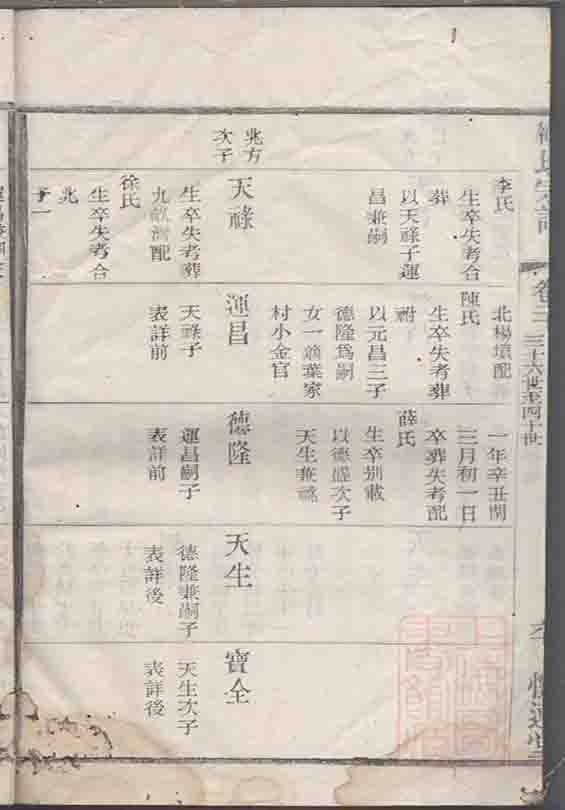 氏宗譜
卷三
三十六世至四十世
李氏
生卒失考合
葬
以天祿子運
昌兼嗣
兆方
次子
天祿
生卒失考葬
九畝灣配
徐氏
生卒失考合
兆
子一
北楊墳配
陳氏
生卒失考葬
祔
以元昌三子
德隆爲嗣
女一適葉家
村小金官
運昌
天祿子
表詳前
一年辛丑閏
三月初一日
卒葬失考配
薛氏
生卒別載
以德盛次子
天生兼祧
德隆
運昌嗣子
表詳前
天生
德隆兼嗣子
表詳後
寶全
天生次子
表詳後